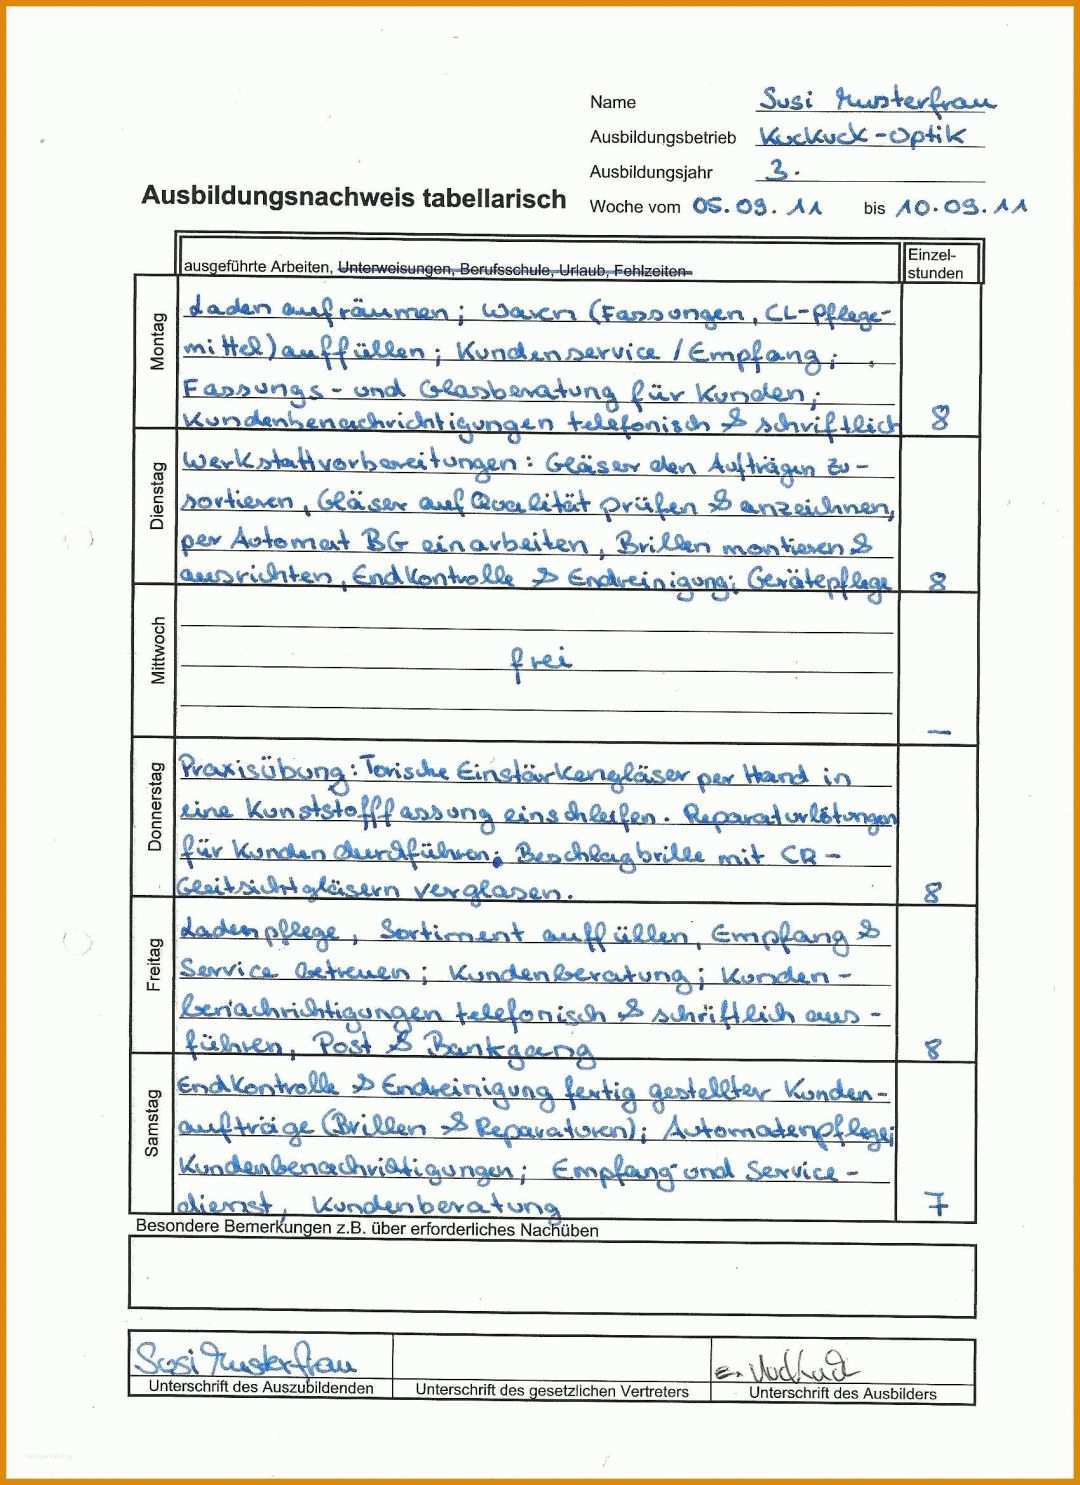 Name Susi Musterfrau
Ausbildungsbetrieb Kuckuck-Optik
Ausbildungsjahr 3.
Ausbildungsnachweis tabellarisch
Woche vom 05.09.11 bis 10.09.11
ausgeführte Arbeiten, Unterweisungen, Berufsschule, Urlaub, Fehlzeiten
Einzel-
stunden
Montag
Laden aufräumen; Waren (Fassungen, CL-Pflege-
mittel) auffüllen; Kundenservice / Empfang;
Fassungs- und Glasberatung für Kunden;
Kundenbenachrichtigungen telefonisch & schriftlich 8
Dienstag
Werkstattvorbereitungen: Gläser den Aufträgen zu-
sortieren, Gläser auf Qualität prüfen & anzeichnen,
per Automat BG einarbeiten, Brillen montieren &
ausrichten, Endkontrolle & Endreinigung; Gerätepflege 8
Mittwoch
frei
—
Donnerstag
Praxisübung: Torische Einstärkengläser per Hand in
eine Kunststofffassung einschleifen. Reparaturlötungen
für Kunden durchführen; Beschlagbrille mit CR-
Gleitsichtgläsern verglasen. 8
Freitag
Ladenpflege, Sortiment auffüllen, Empfang &
Service betreuen; Kundenberatung; Kunden-
benachrichtigungen telefonisch & schriftlich aus-
führen, Post & Bankgang 8
Samstag
Endkontrolle & Endreinigung fertig gestellter Kunden-
aufträge (Brillen & Reparaturen); Automatenpflege;
Kundenbenachrichtigungen; Empfang und Service-
dienst, Kundenberatung 7
Besondere Bemerkungen z.B. über erforderliches Nachüben
Susi Musterfrau
Unterschrift des Auszubildenden
Unterschrift des gesetzlichen Vertreters
Unterschrift des Ausbilders